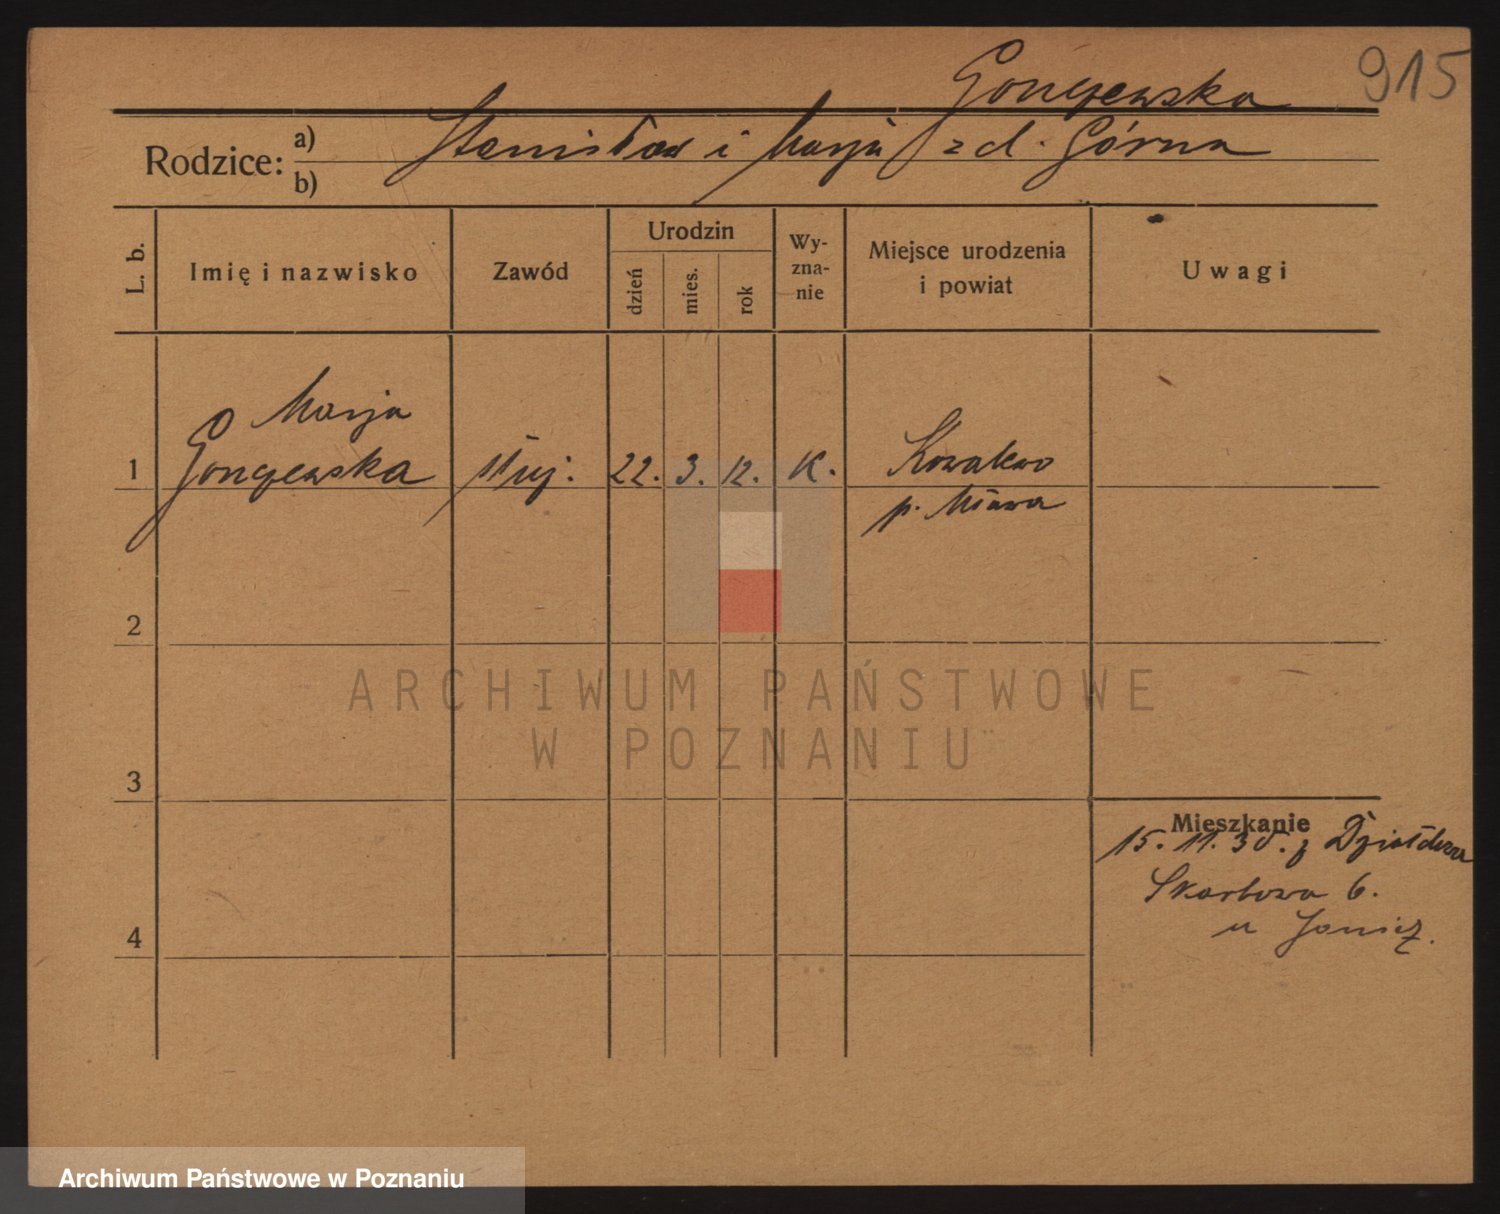 Gongewska 915
Rodzice: a) Stanisław i Marja z d. Górna
b)
L. b. Imię i nazwisko Zawód Urodzin dzień mies. rok Wyzna-nie Miejsce urodzenia i powiat Uwagi
Marja
1 Gongewska służ. 22. 3. 12. K. Kowalewo
p. Mława
2
ARCHIWUM PAŃSTWOWE
W POZNANIU
3
Mieszkanie
15. 11. 30. z Działdowa
Skarbowa 6.
4 u
Archiwum Państwowe w Poznaniu